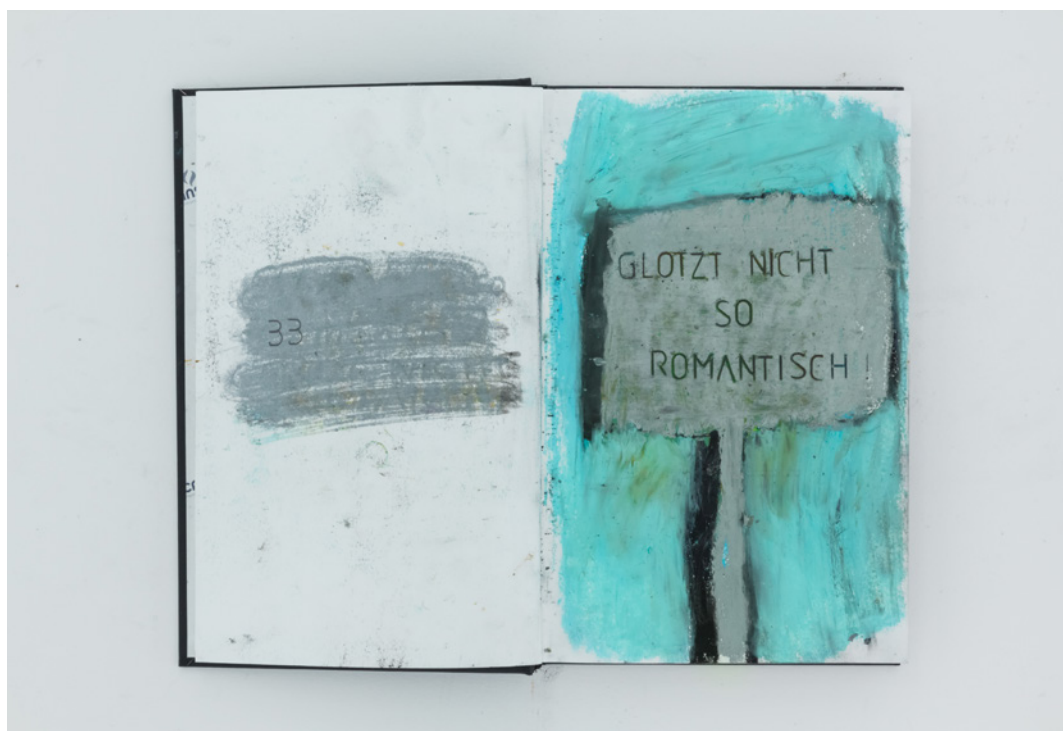 33
GLOTZT NICHT
SO
ROMANTISCH!